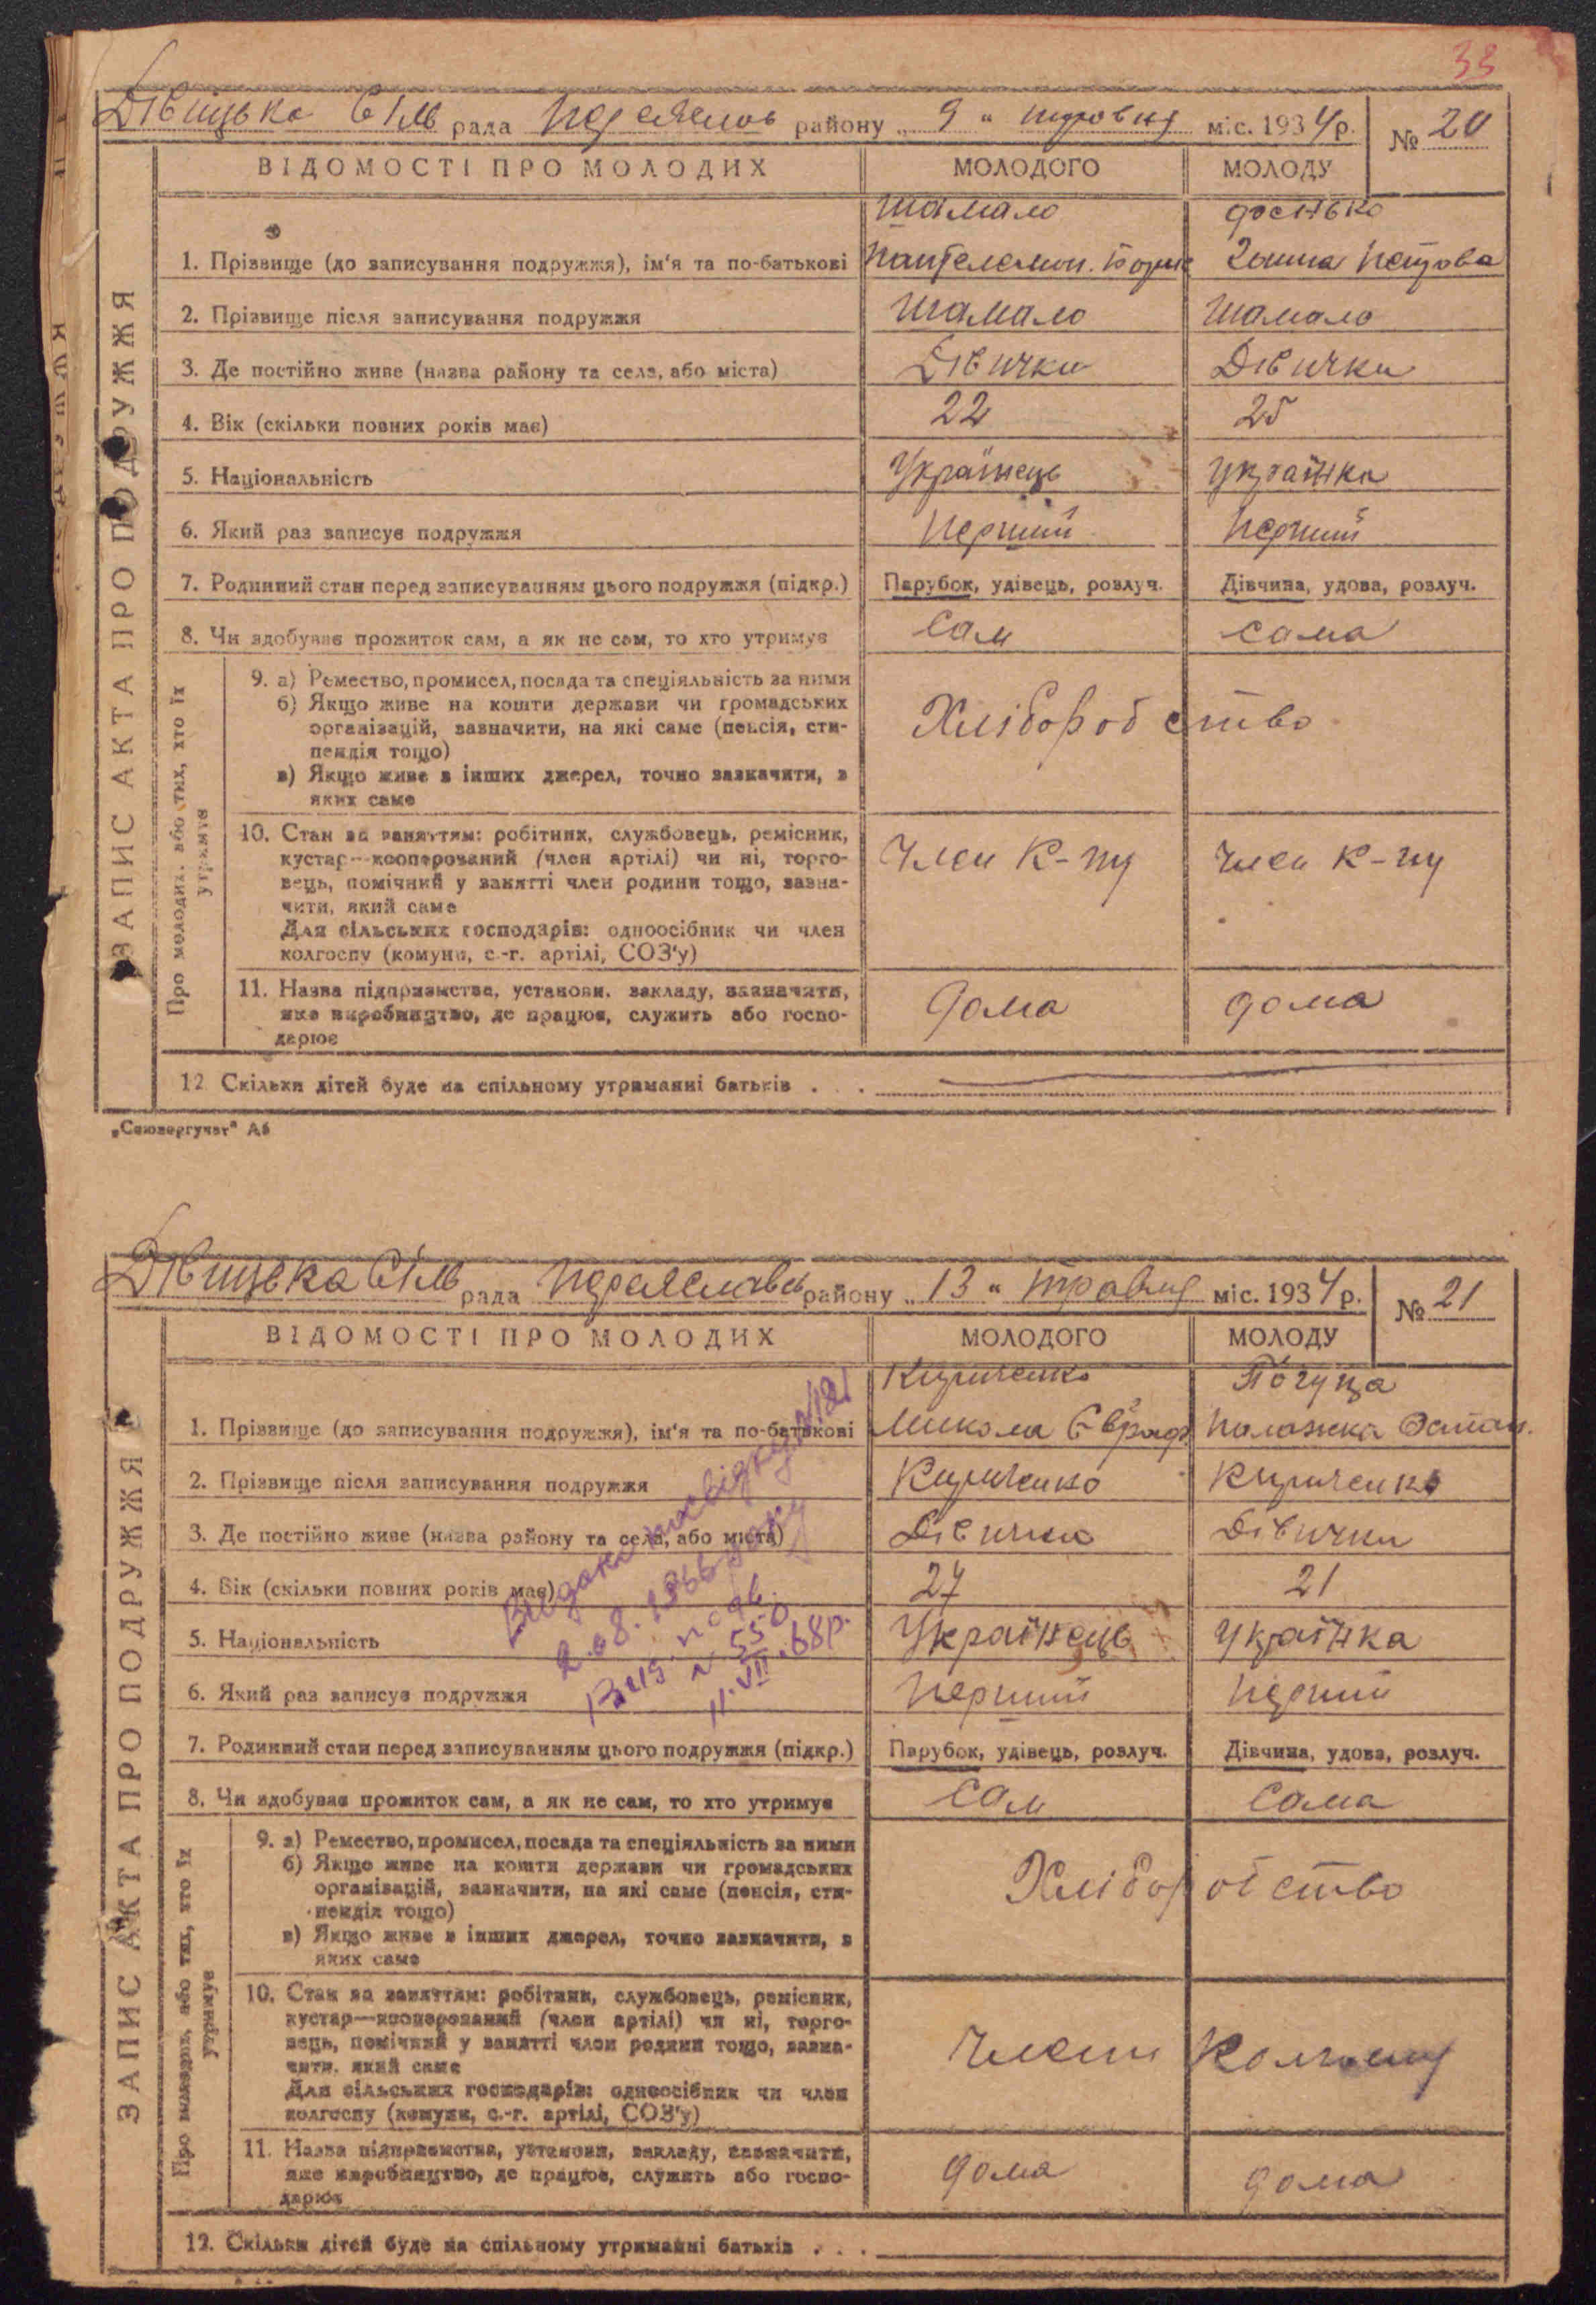 33
Дівицька Сіль рада Переяслов району „ 9 “ травня міс. 1934 р. № 20
ВІДОМОСТІ ПРО МОЛОДИХ МОЛОДОГО МОЛОДУ
Шамало
1. Прізвище (до записування подружжя), ім'я та по-батькові Пантелемон. Петрова
2. Прізвище після записування подружжя Шамало Шамало
3. Де постійно живе (назва району та села, або міста) Дівички Дівички
4. Вік (скільки повних років має) 22 25
5. Національність Українець Українка
6. Який раз записує подружжя Перший Перший
7. Родинний стан перед записуванням цього подружжя (підкр.) Парубок, удівець, розлуч. Дівчина, удова, розлуч.
8. Чи здобуває прожиток сам, а як не сам, то хто утримує Сам Сама
9. а) Ремество, промисел, посада та спеціяльність за ними
б) Якщо живе на кошти держави чи громадських
організацій, зазначити, на які саме (пенсія, сти-
пендія тощо)
в) Якщо живе з інших джерел, точно зазначити, з
яких саме
Хліборобство
10. Стан за заняттям: робітник, службовець, ремісник,
кустар—кооперований (член артілі) чи ні, торго-
вець, помічний у занятті член родини тощо, зазна-
чити, який саме
Для сільських господарів: одноосібник чи член
колгоспу (комуни, с.-г. артілі, СОЗ'у)
Член К-пу Член К-пу
11. Назва підприємства, установи, закладу, зазначити,
яке виробництво, де працює, служить або госпо-
дарює
дома дома
12 Скільки дітей буде на спільному утриманні батьків . . .
ЗАПИС АКТА ПРО ПОДРУЖЖЯ
Про молодих, або тих, хто їх
утримує
Дівицька Сіль рада Переяславсь району „ 13 “ травня міс. 1934 р. № 21
ВІДОМОСТІ ПРО МОЛОДИХ МОЛОДОГО МОЛОДУ
Кириченко Погуца
1. Прізвище (до записування подружжя), ім'я та по-батькові Микола Євраф Положка Остап.
2. Прізвище після записування подружжя Кириченко Кириченко
3. Де постійно живе (назва району та села, або міста) Дівички Дівички
4. Вік (скільки повних років має) 27 21
5. Національність Українець Українка
6. Який раз записує подружжя Перший Перший
7. Родинний стан перед записуванням цього подружжя (підкр.) Парубок, удівець, розлуч. Дівчина, удова, розлуч.
8. Чи здобуває прожиток сам, а як не сам, то хто утримує Сам Сама
9. а) Ремество, промисел, посада та спеціяльність за ними
б) Якщо живе на кошти держави чи громадських
організацій, зазначити, на які саме (пенсія, сти-
пендія тощо)
в) Якщо живе з інших джерел, точно зазначити, з
яких саме
Хліборобство
10. Стан за заняттям: робітник, службовець, ремісник,
кустар—кооперований (член артілі) чи ні, торго-
вець, помічний у занятті член родини тощо, зазна-
чити, який саме
Для сільських господарів: одноосібник чи член
колгоспу (комуни, с.-г. артілі, СОЗ'у)
Члени Колгоспу
11. Назва підприємства, установи, закладу, зазначити,
яке виробництво, де працює, служить або госпо-
дарює
дома дома
12. Скільки дітей буде на спільному утриманні батьків . . .
ЗАПИС АКТА ПРО ПОДРУЖЖЯ
Про молодих, або тих, хто їх
утримує
2.08.1966 року
550
11.VII.68р.